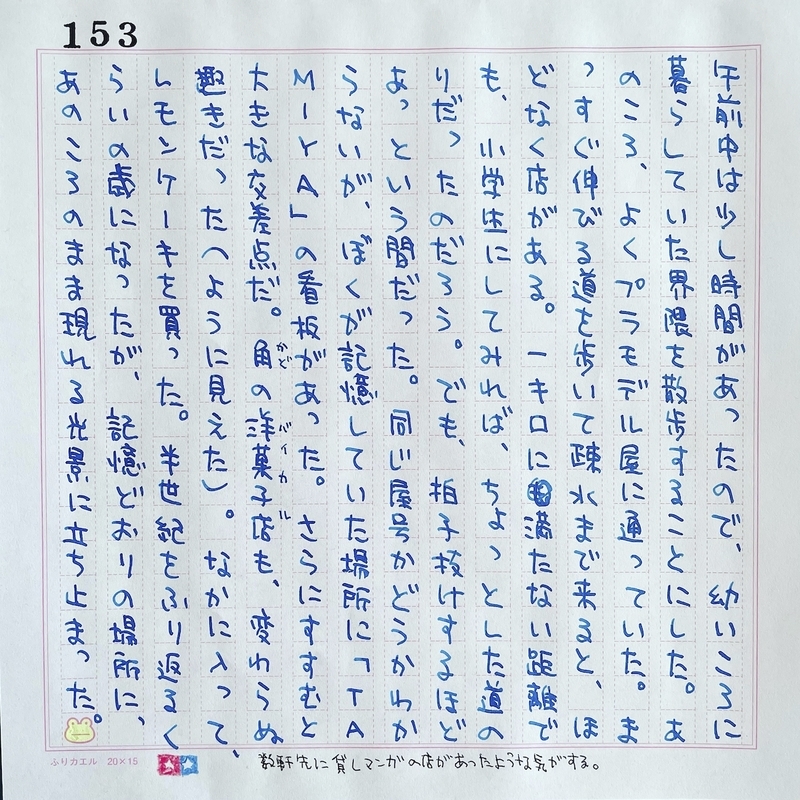 153
午前中は少し時間があったので、幼いころに
暮らしていた界隈を散歩することにした。あ
のころ、よくプラモデル屋に通っていた。ま
っすぐ伸びる道を歩いて疎水まで来ると、ほ
どなく店がある。一キロに満たない距離で
も、小学生にしてみれば、ちょっとした道の
りだったのだろう。でも、拍子抜けするほど
あっという間だった。同じ屋号かどうかわか
らないが、ぼくが記憶していた場所に「TA
MIYA」の看板があった。さらにすすむと
大きな交差点だ。角の洋菓子店も、変わらぬ
かど
バイカル
趣きだった（ように見えた）。なかに入って、
レモンケーキを買った。半世紀をふり返るく
らいの歳になったが、記憶どおりの場所に、
あのころのまま現れる光景に立ち止まった。
数軒先に貸しマンガの店があったような気がする。
ふりカエル 20×15